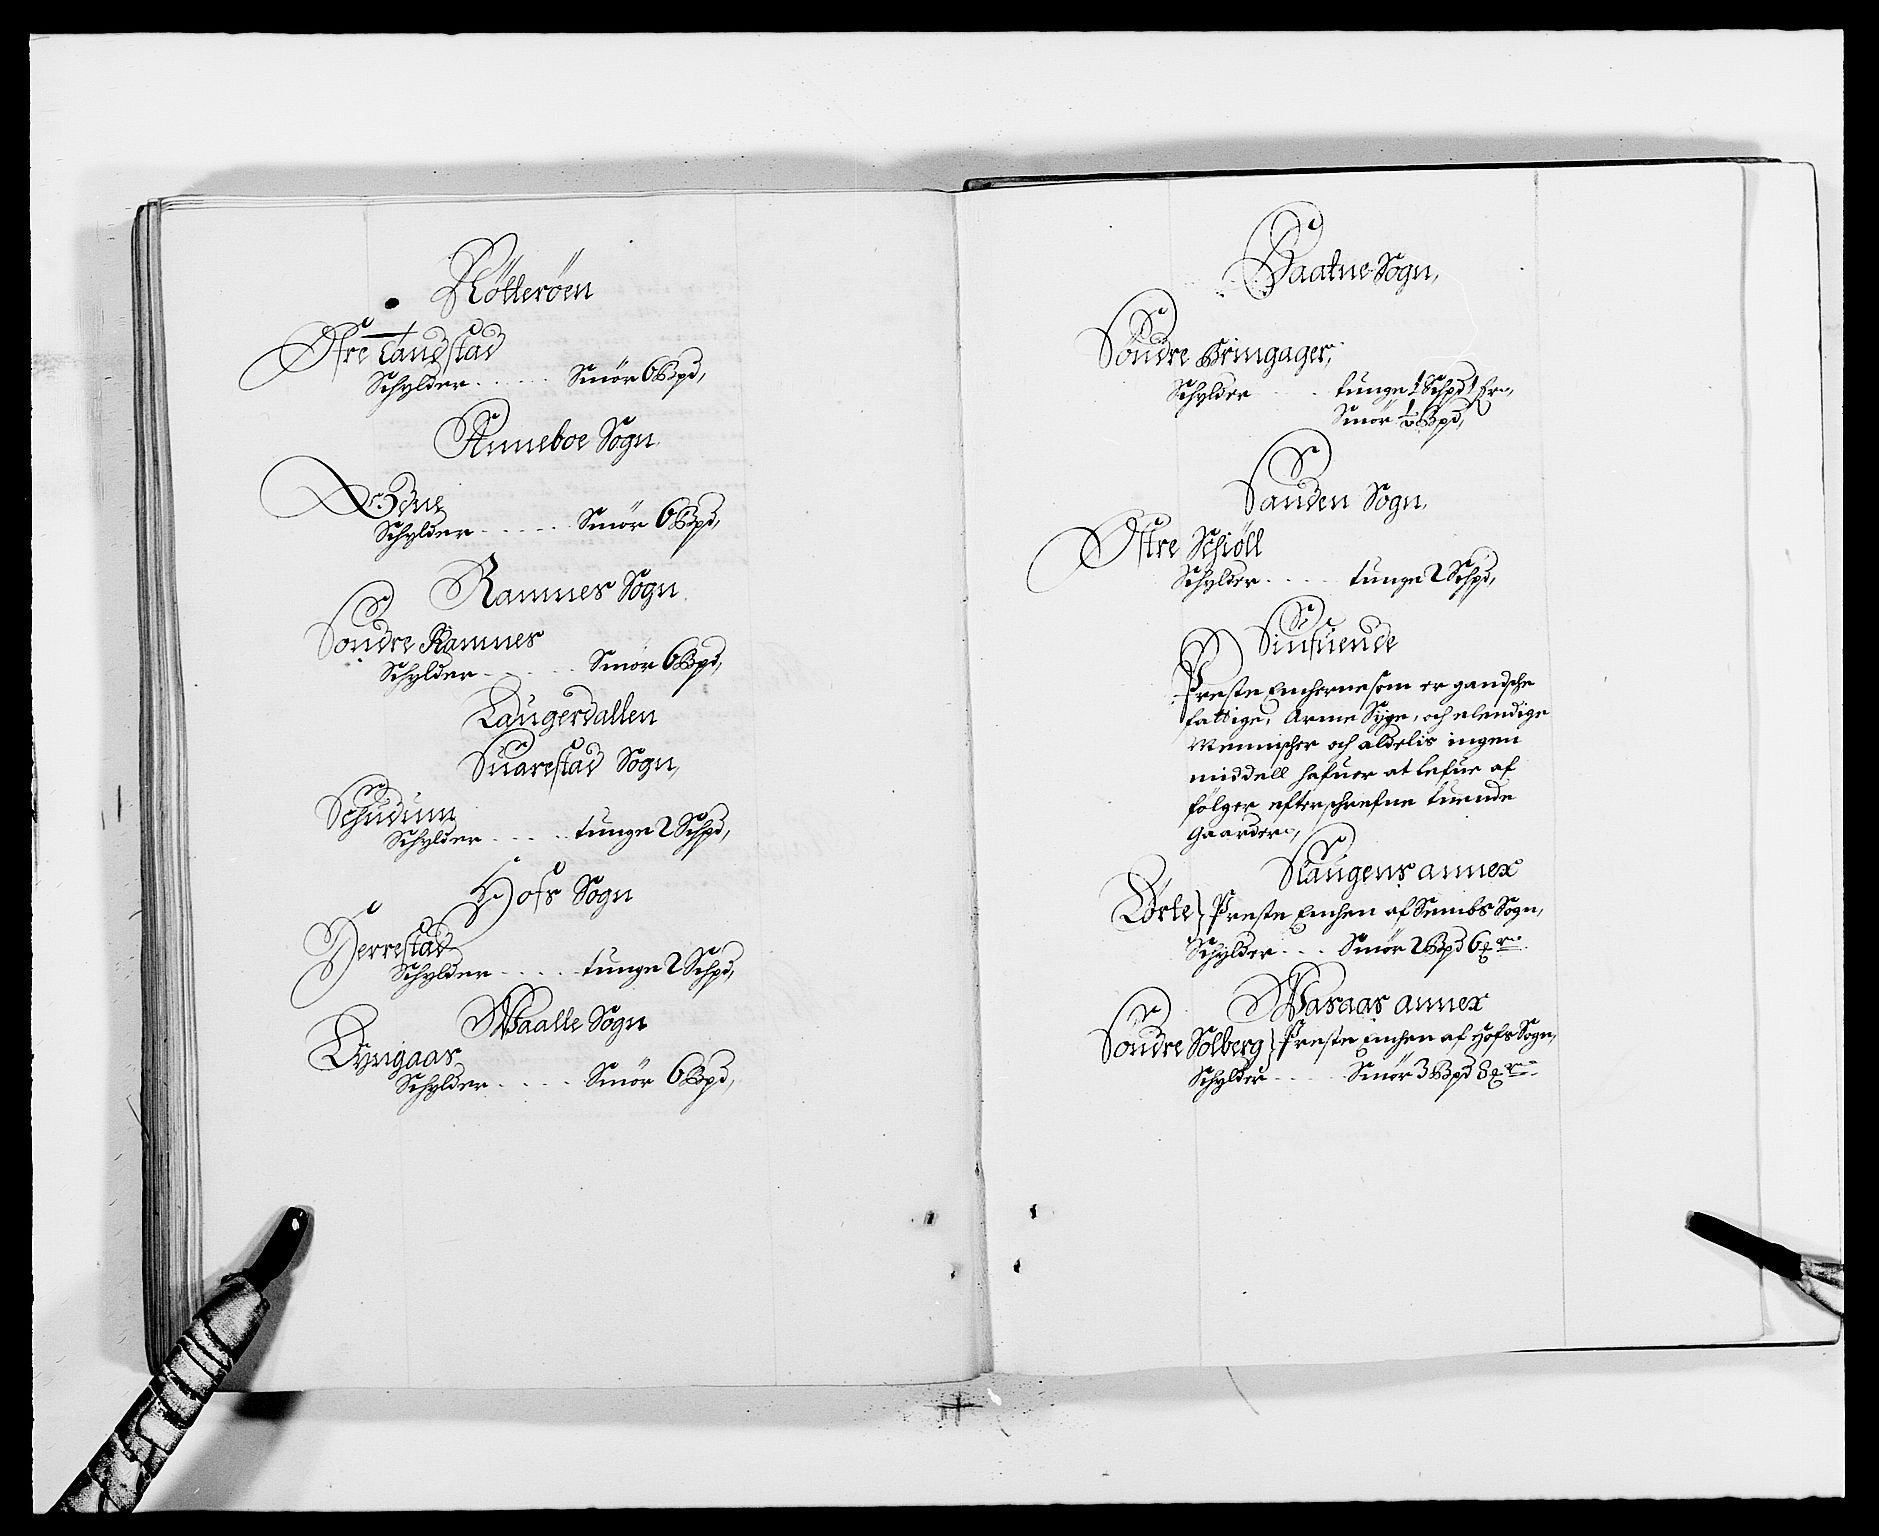 Nøtterøen
Østre Tandstad
Schylder . . . . . Smör 6 Bpd,
Anneboe Sogn.
Schylder . . . . . Smör 6 Bpd,
Ramnes Sogn.
Söndre Ramnes
Schylder . . . . Smör 6 Bpd,
Laugerdallen
Suarestad Sogn,
Schudum
Schylder . . . . . tunge 2 Schpd,
Hofs Sogn
Herrestad
Schylder . . . . . tunge 2 Schpd,
Waalle Sogn
Lyngaas
Schylder . . . . Smör 6 Bpd,
Baatne Sogn,
Söndre Bringager,
Schylder . . . tunge 1 Schpd 1
Smör ½ Bpd,
Sanden Sogn.
Østre Schiöll
Schylder . . . . tunge 2 Schpd,
Siufuende
Preste Enckerne som er gandsche
fattige, Arme Syge, och elendige
Mennischer och aldelis ingen
middell hafuer at lefue af
fölger efterschrefne tuende
Gaarder,
Slaugens annex
Lörte } Preste Enchen af Sembs Sogn,
Schylder . . . Smör 2 Bpd 6
Wasaas annex
Söndre Solberg } Preste Enchen af Hofs Sogn,
Schylder . . . . Smör 3 Bpd 8